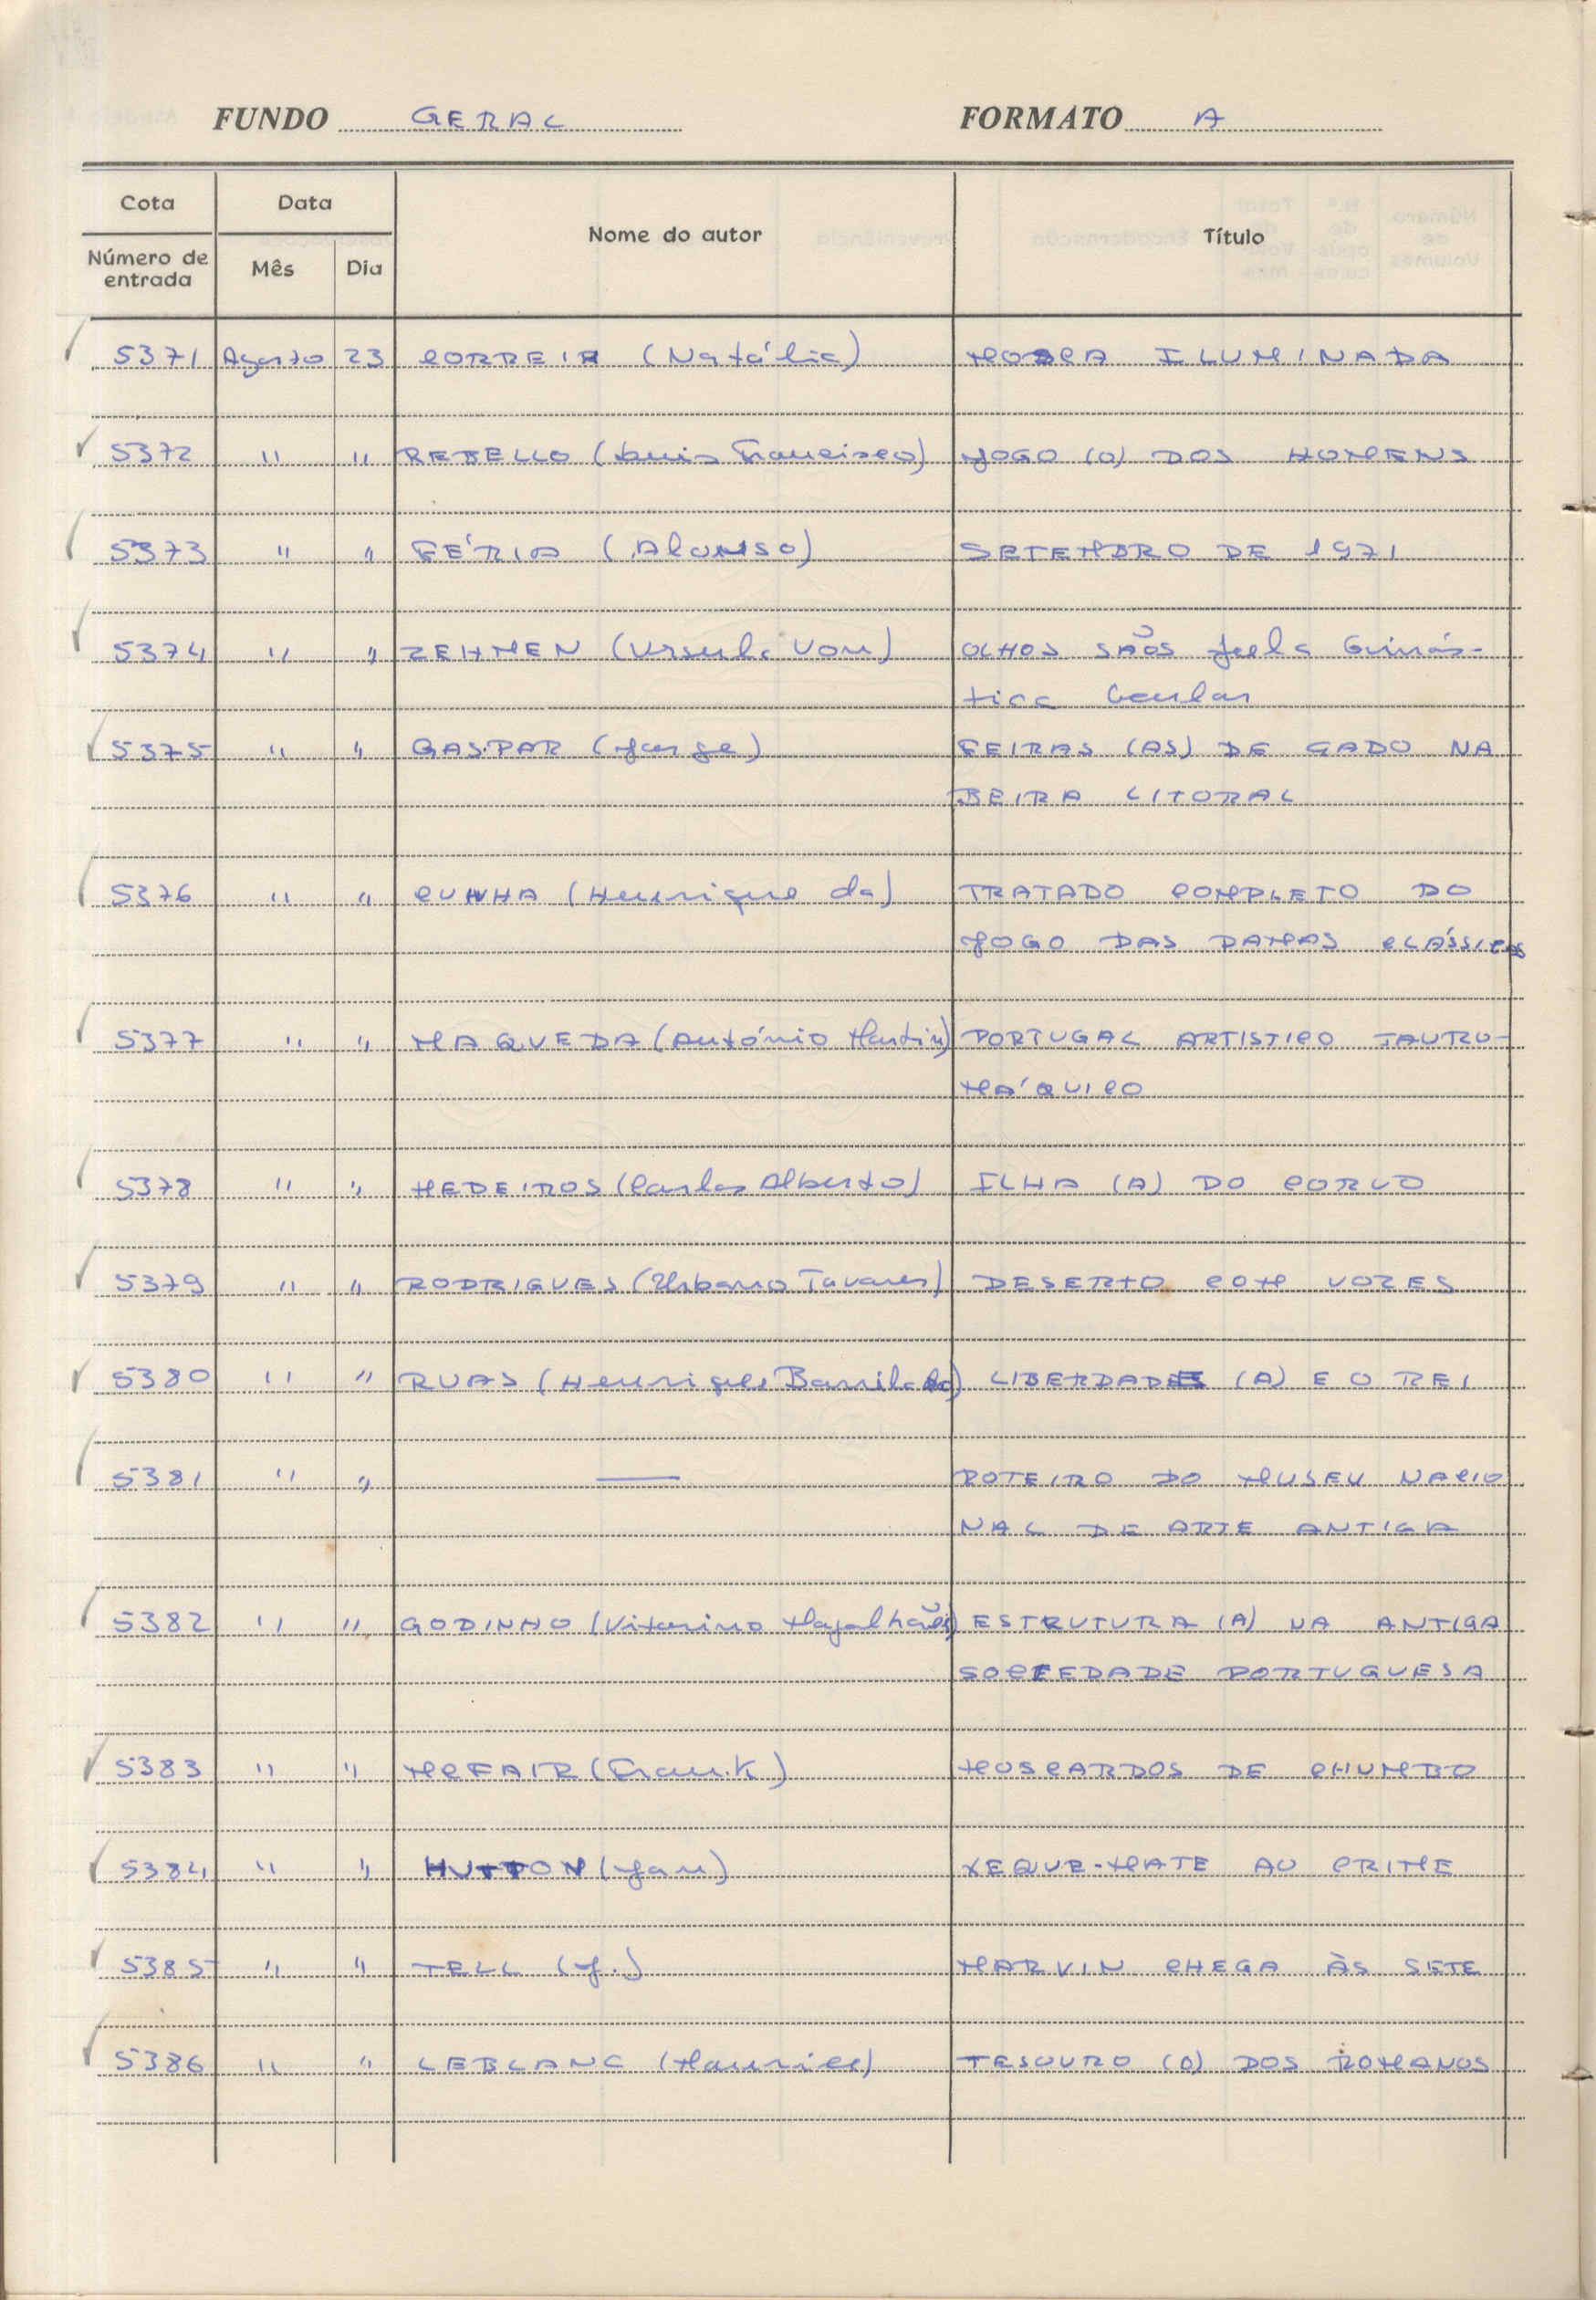 FUNDO GERAL FORMATO A
Cota Data Nome do autor Título
Número de entrada Mês Dia
5371 Agosto 23 CORREIA (Natália) MOSCA ILUMINADA
5372 " " REBELLO (Luis Francisco) JOGO (O) DOS HOMENS
5373 " " FÉRIA (Alonso) SETEMBRO DE 1971
5374 " " ZEHMEN (Ursula Von) OLHOS SÃOS pela Ginás-
tica Ocular
5375 " " GASPAR (Jorge) FEIRAS (AS) DE GADO NA
BEIRA LITORAL
5376 " " CUNHA (Henrique da) TRATADO COMPLETO DO
JOGO DAS DAMAS CLÁSSICAS
5377 " " MAQUEDA (António Martin) PORTUGAL ARTISTICO TAURO-
MÁQUICO
5378 " " MEDEIROS (Carlos Alberto) ILHA (A) DO CORVO
5379 " " RODRIGUES (Urbano Tavares) DESERTO COM VOZES
5380 " " RUAS (Henrique Barrilaro) LIBERDADE (A) E O REI
5381 " " — ROTEIRO DO MUSEU NACIO
NAL DE ARTE ANTIGA
5382 " " GODINHO (Vitorino Magalhães) ESTRUTURA (A) NA ANTIGA
SOCIEDADE PORTUGUESA
5383 " " MCFAIR (Frank) MOSCARDOS DE CHUMBO
5384 " " HUTTON (Jan) XEQUE-MATE AO CRIME
5385 " " TELL (J.) MARVIN CHEGA ÀS SETE
5386 " " LEBLANC (Maurice) TESOURO (O) DOS ROMANOS